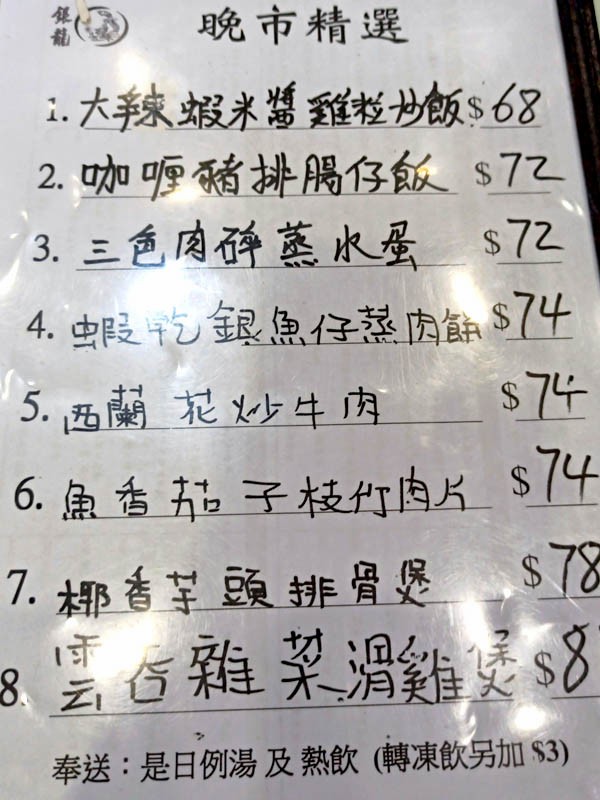 銀龍
晚市精選
1. 大辣蝦米醬雞粒炒飯 $68
2. 咖喱豬排腸仔飯 $72
3. 三色肉碎蒸水蛋 $72
4. 蝦乾銀魚仔蒸肉餅 $74
5. 西蘭花炒牛肉 $74
6. 魚香茄子枝竹肉片 $74
7. 椰香芋頭排骨煲 $78
8. 雲吞雜菜滑雞煲 $8
奉送：是日例湯 及 熱飲 (轉凍飲另加 $3)